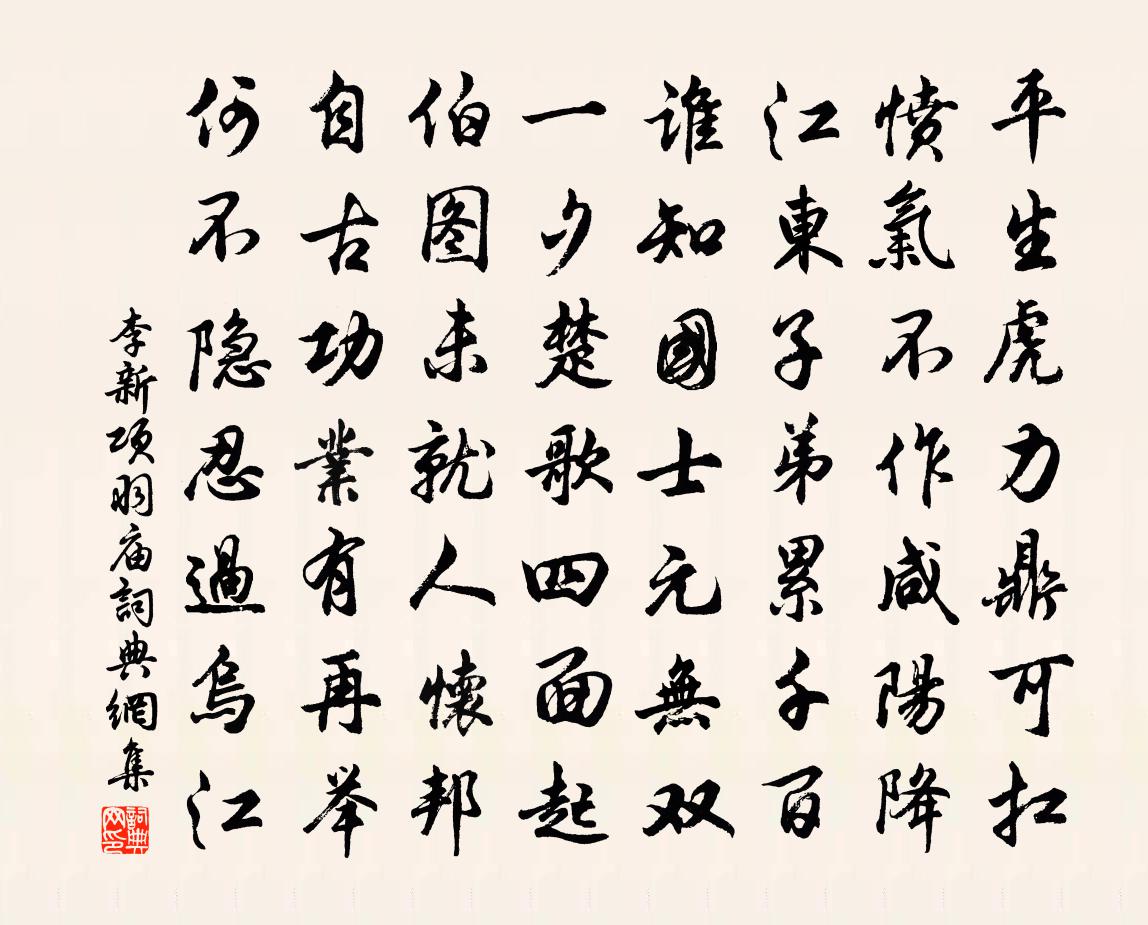 平生虎力鼎可扛
憤氣不作咸陽降
江東子弟累千百
谁知國士元無双
一夕楚歌四面起
伯图未就人懷邦
自古功業有再举
何不隐忍過烏江
李新項羽庙詞典網集
詞典网印